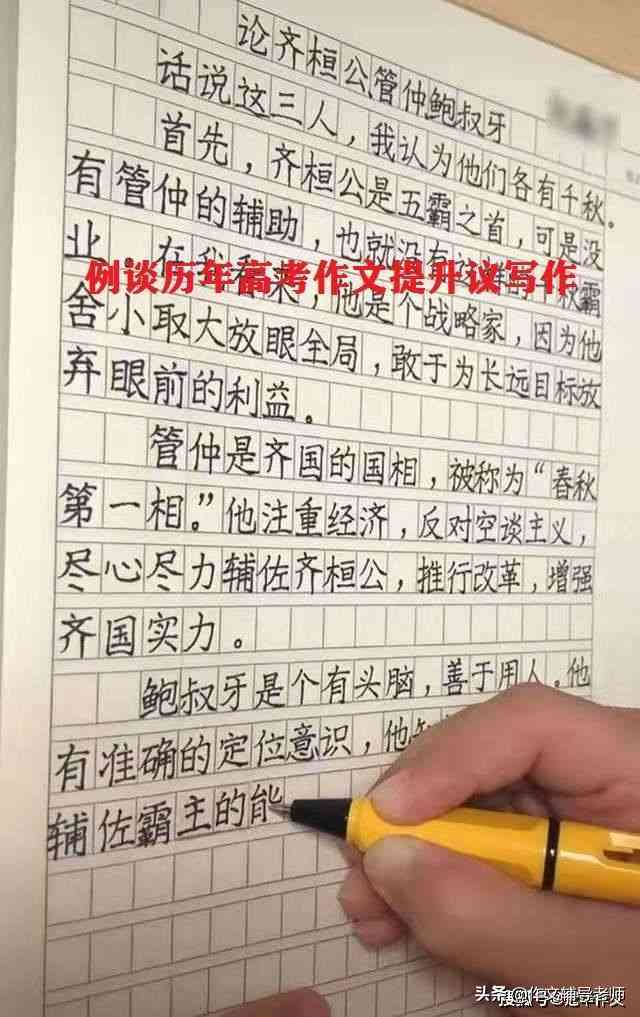 论齐桓公管仲鲍叔牙
话说这三人，我认为他们各有千秋。
首先，齐桓公是五霸之首，可是没
有管仲的辅助，也就没有
霸
业。在我看来，他是个战略家，因为他
例谈历年高考作文提升议写作
舍小取大放眼全局，敢于为长远目标放
弃眼前的利益。
管仲是齐国的国相，被称为“春秋
第一相。”他注重经济，反对空谈主义，
尽心尽力辅佐齐桓公，推行改革，增强
齐国实力。
鲍叔牙是个有头脑，善于用人。他
有准确的定位意识，他
辅佐霸主的能
头条@作文辅导老师
搜狐号@